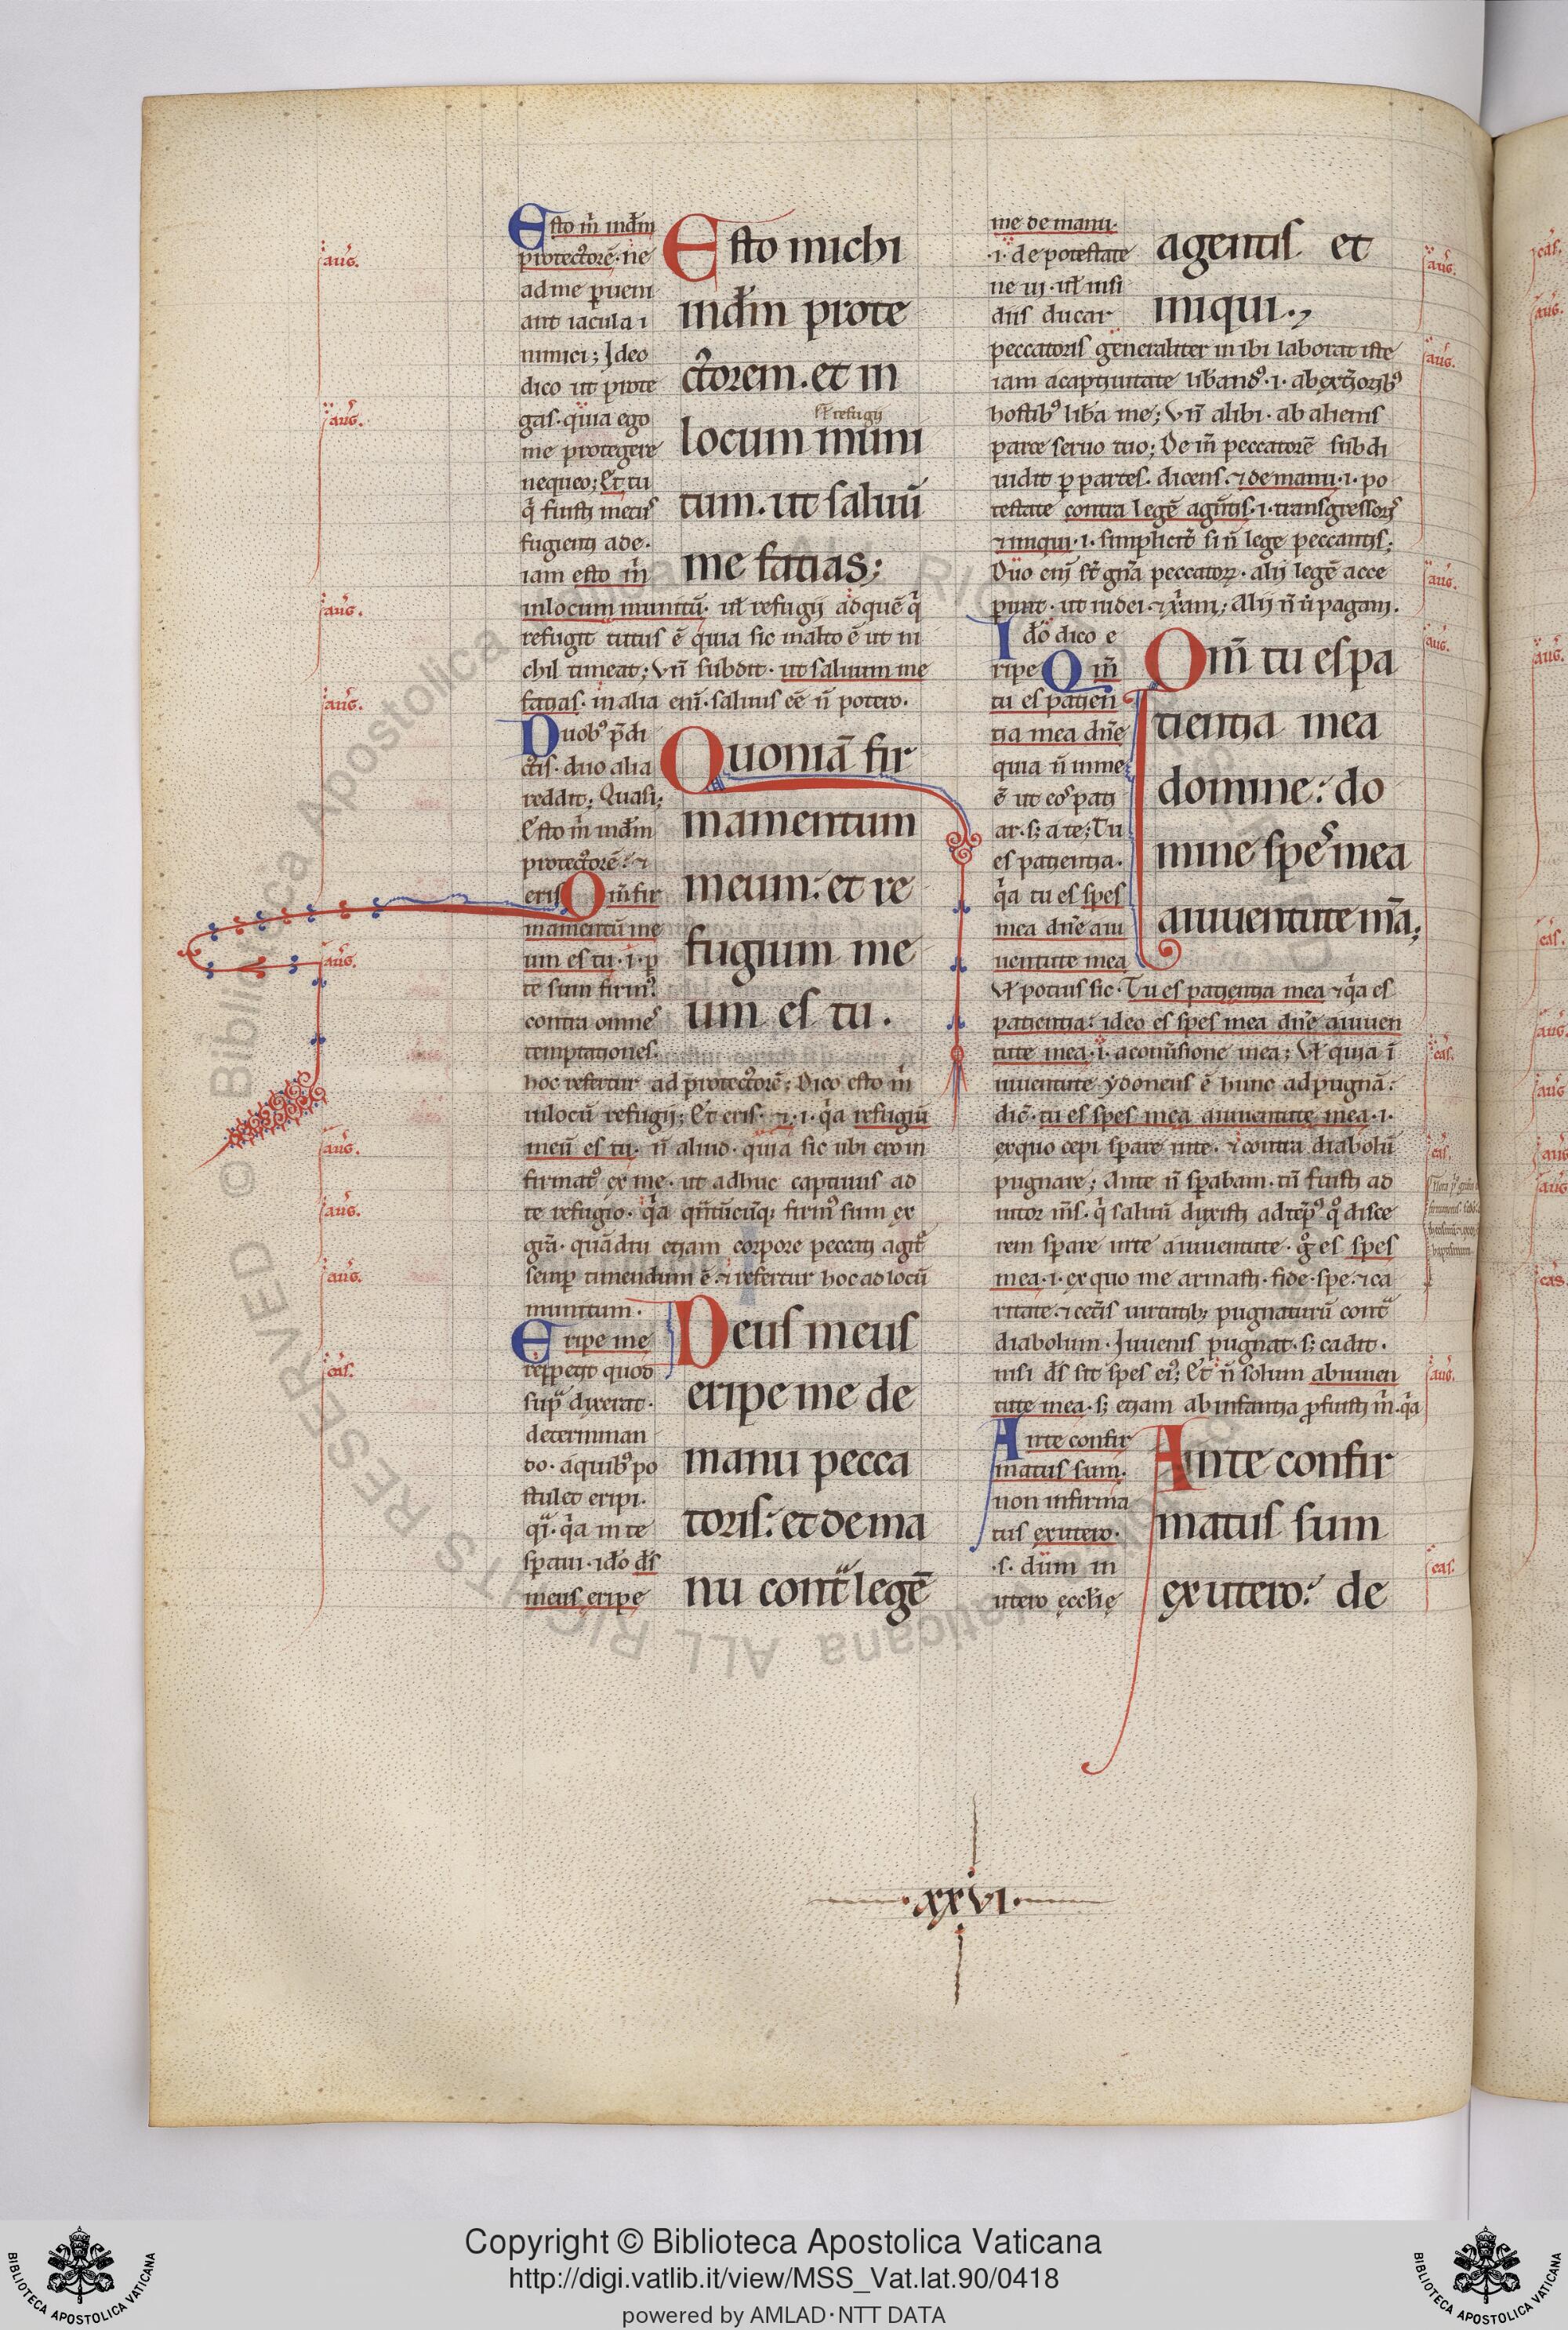 Esto m̄ ind̄m
protectorē · ne
ad me ꝑueni
ant iacula i
nimici; Ideo
dico ut prote
gas · quia ego
me protegere
nequeo; Et tu
fugienti a de ·
iam esto m̄
in locum munitū · ul̄ refugij ad quē q̄
refugit tutus ē quia sic in alto ē ut ni
chil timeat; Vn̄ subdit · ut saluum me
fatias · in alia eni᷒ · saluus eē n̄ potero ·
Esto michi
ind̄m prote
ctorem . et in
sc̄ refugij
locum muni
tum . ut saluū
me fatias;
Duob᷒ p̄di
ctis · duo alia
reddit; Quasi;
Esto m̄ ind̄m
protectorē · ⁊
eris Qm̄ fir
mamentū me
um es tu · i · ꝑ
te sum firm᷒
contra omnes
temptationes ·
hoc refertur ad protectorē; Dico esto m̄
in locū refugij; Et eris · ⁊ · i · q̄a refugiū
meū es tu · n̄ aliud · quia sic ubi ero in
firmat᷒ ex me · ut adhuc captiuus ad
te refugio · q̄a firm᷒ sum ex
gr̄a · quādiu etiam corpore peccati agit᷒
semꝑ timendum ē · ⁊ refertur hoc ad locū
munitum ·
Quoniā fir
mamentum
meum : et re
fugium me
um es tu .
Eripe me
repetit quod
sup̄ dixerat ·
determinan
do · a quib᷒ po
stulet eripi ·
q̄i · q̄a in te
sꝑaui · id̄o d̄s
meus eripe
Deus meus
eripe me de
manu pecca
toris : et de ma
nu cont̄ legē
me de manu ·
· i · de potestate
ne in · ul̄ nisi
peccatoris generaliter in ibi laborat iste
iam a captiuitate lib̄and᷒ · i · ab exterioribus
hostib᷒ lib̄a me; Vn̄ alibi · ab alienis
parce seruo tuo; De in̄ peccatorē subdi
uidit ꝑ partes · dicens · ⁊ de manu · i · po
testate contra legē agentis · i · transgressoris
⁊ iniqui · i · simplicit᷒ sī n̄ lege peccantis;
Duo eni᷒ st̄ gn̄a peccatorꝝ · alij legē acce
ꝑunt · ut iudei · ⁊ xp̄iani; Alij n̄ ut pagani ·
agentis et
iniqui .
Id̄o dico e
ripe Qm̄
tu es patien
tia mea dn̄e
quia n̄ in me
ē ut eos pati
ar · s; a te; Tu
es patientia ·
q̄a tu es spes
mea dn̄e a iu
uentute mea
Vl̄ potius sic · Tu es patientia mea ⁊ q̄a es
patientia : ideo es spes mea dn̄e a iuuen
tute mea · i · a conuersione mea; Vl̄ quia i᷒
iuuentute ydoneus ē hunc ad pugnā :
dic᷒ · tu es spes mea a iuuentute mea · i ·
ex quo cepi sꝑare in te · ⁊ contra diabolū
pugnare; Ante n̄ sꝑabam · tn̄ fuisti ad
rem sꝑare in te a iuuentute · g᷒ es spes
mea · i · ex quo me armasti · fide · spe · ⁊ ca
ritate · ⁊ cet̄is uirtutib; pugnaturū cont̄
diabolum · Iuuenis pugnat · s; cadit ·
nisi d̄s sit spes ei᷒; Et n̄ solum a iuuen
tute mea · s; etiam ab infantia ꝓfuisti m̄ · q̄a
Qm̄ tu es pa
tientia mea
domine : do
mine spes mea
a iuuentute m̄a;
In te confir
matus sum ·
non infirma
tus ex utero ·
· s · dum in
utero ecclīe
In te confir
matus sum
ex utero : de
aug.
aug.
aug.
aug.
aug.
aug.
aug.
aug.
cas.
aug.
aug.
aug.
aug.
cas.
cas.
aug.
cas.
· xxvi ·
© Biblioteca Apostolica Vaticana ALL RIGHTS RESERVED
Copyright © Biblioteca Apostolica Vaticana
http://digi.vatlib.it/view/MSS_Vat.lat.90/0418
powered by AMLAD·NTT DATA
BIBLIOTECA APOSTOLICA VATICANA
BIBLIOTECA APOSTOLICA VATICANA